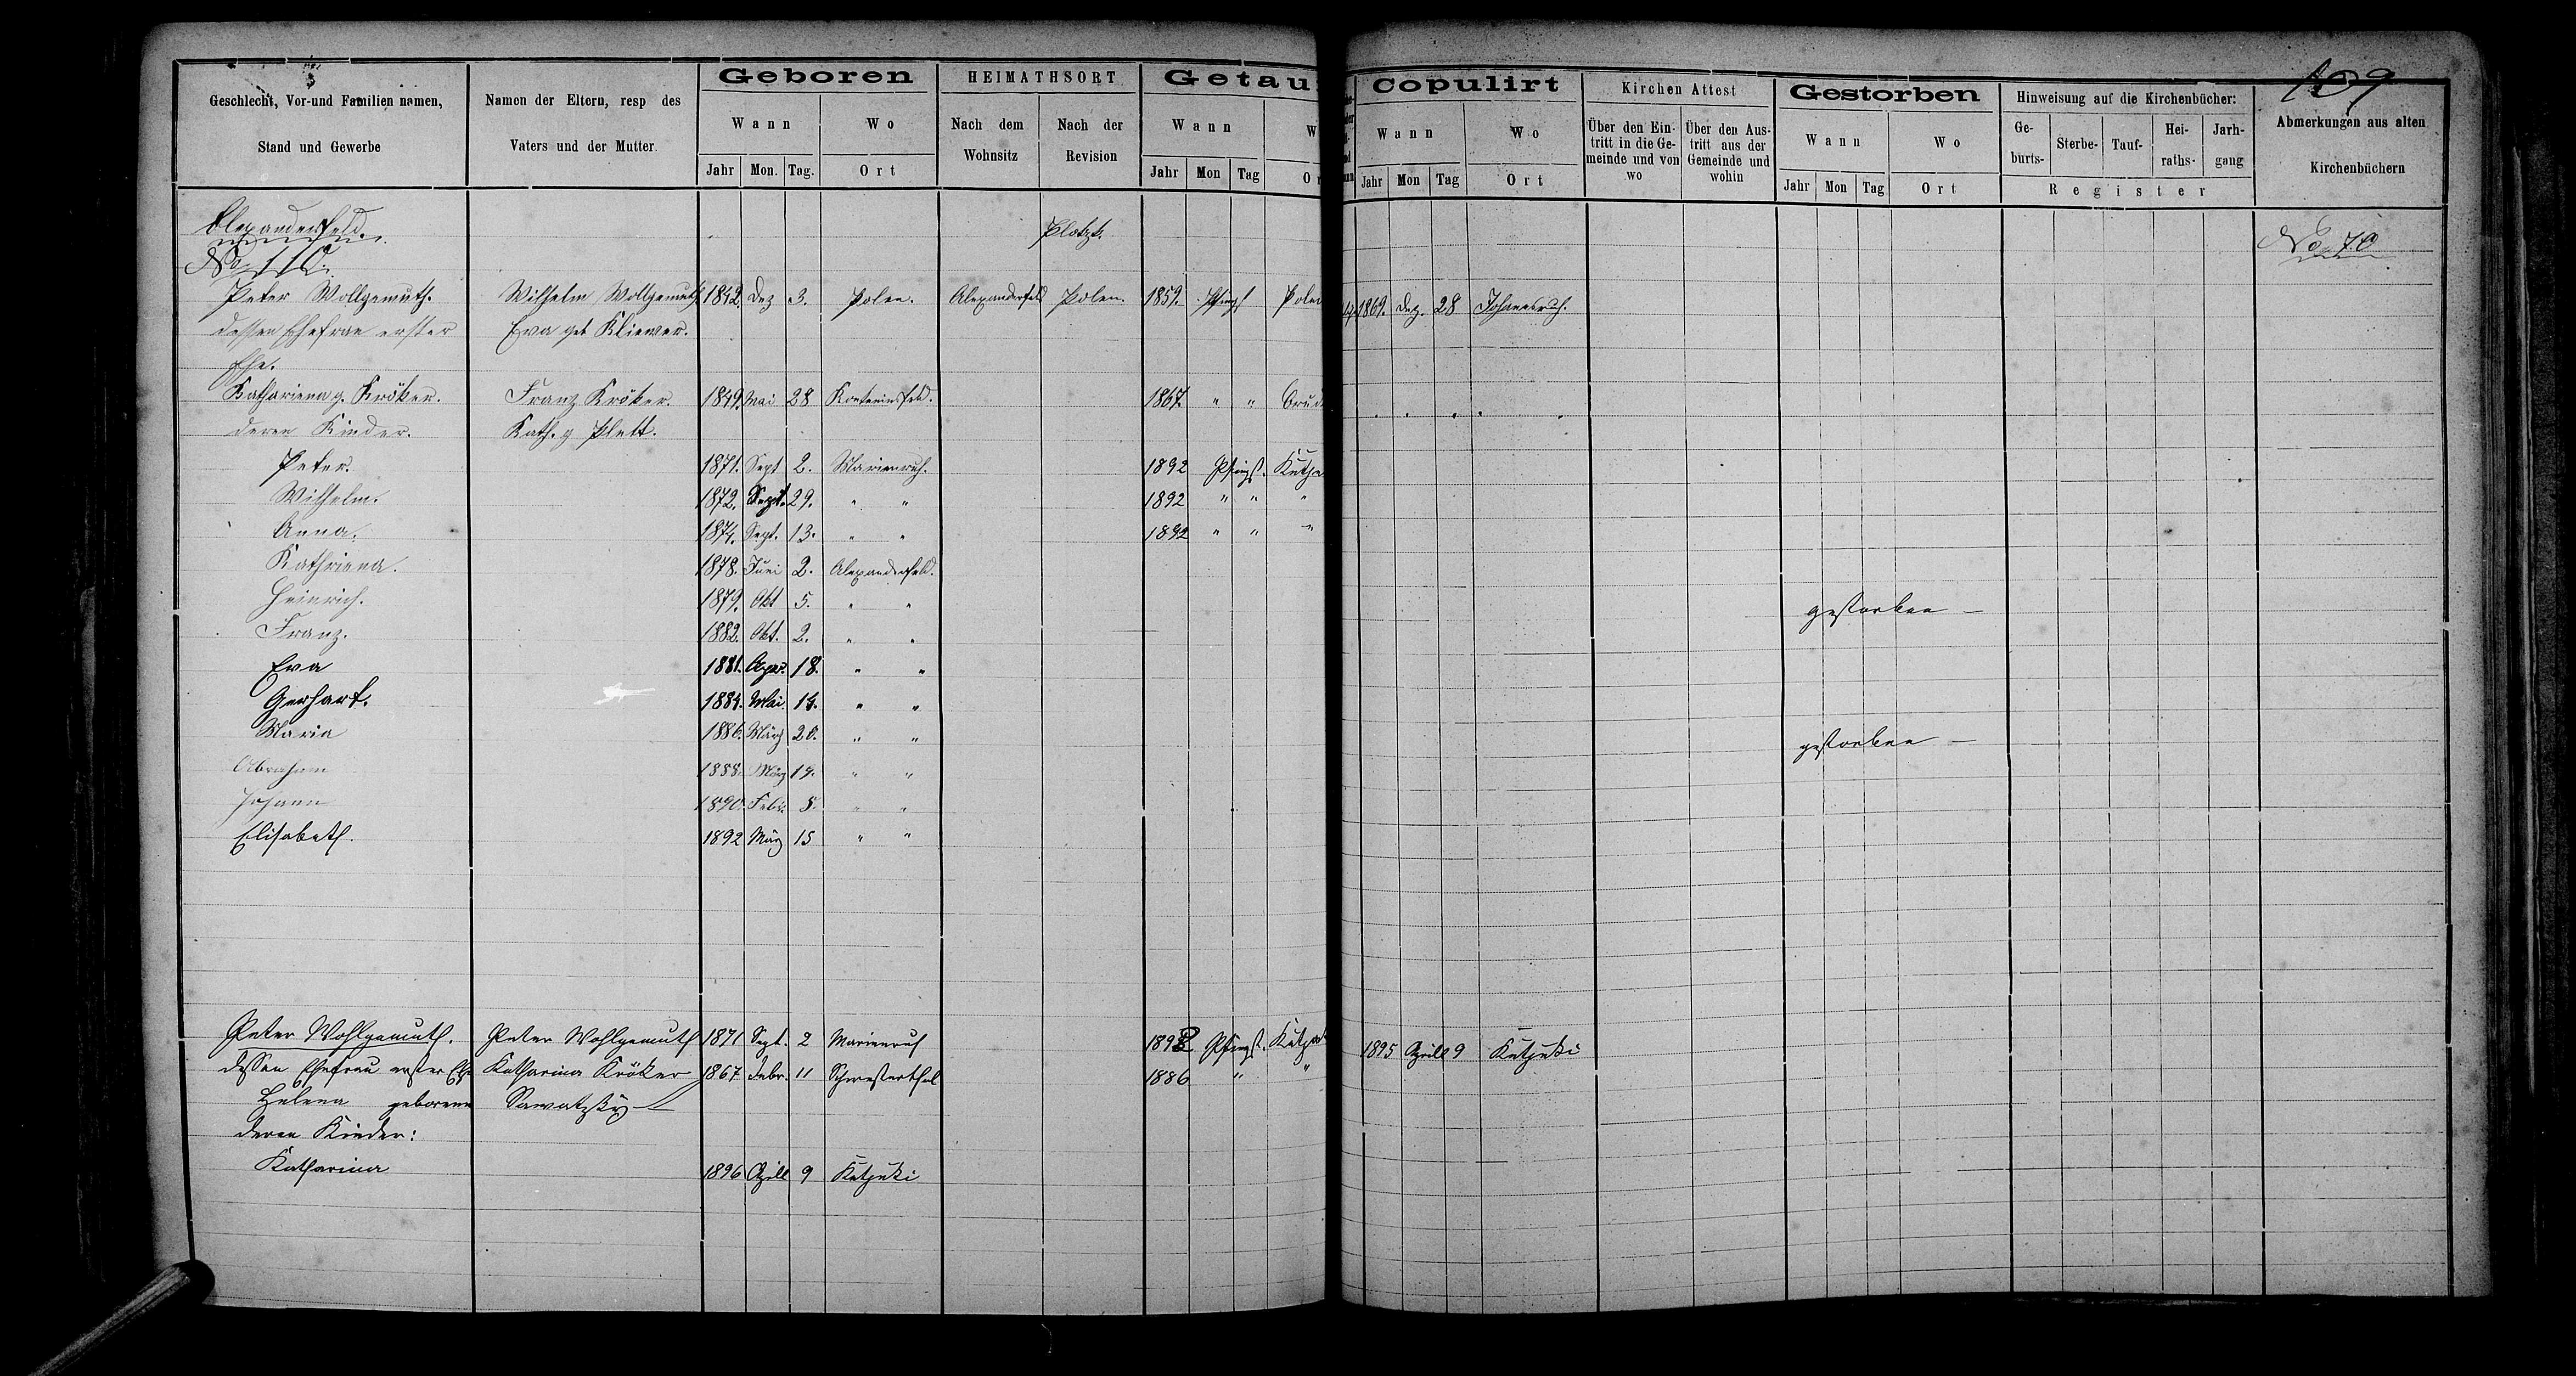 109
Geschlecht, Vor-und Familien namen, Stand und Gewerbe | Namen der Eltern, resp des Vaters und der Mutter | Geboren Wann Jahr Mon. Tag. Wo Ort | HEIMATHSORT Nach dem Wohnsitz Nach der Revision | Getau Wann Jahr Mon Tag | Copulirt Wann Jahr Mon Tag Wo Ort | Kirchen Attest Über den Eintritt in die Gemeinde und von wo Über den Austritt aus der Gemeinde und wohin | Gestorben Wann Jahr Mon Tag Wo Ort | Hinweisung auf die Kirchenbücher: Geburts- Sterbe- Tauf- Heiraths- Jarhgang Register | Abmerkungen aus alten Kirchenbüchern
Alexanderfeld. Plotzk. No. 70
Peter Wollgemuth. Wilhelm Wollgemuth 1842. Dez 3. Polen. Alexanderfeld Polen. 1859. Pfingst Polen 1869. Dez. 28 Johannesruh.
dessen Ehefrau erster Eva geb Kliewer.
Ehe.
Kathariena g. Kröker. Franz Kröker. 1849. Mai 28 Konteniusfeld. 1867. " "
deren Kinder. Kath. g Plett.
Peter. 1871. Sept 2. Marienruh. 1892 Pfingst.
Wilhelm. 1872. Sept. 29. " " 1892 " " "
Anna. 1874. Sept. 13. " " 1892 " " "
Kathriena. 1878. Juni 2. Alexanderfeld.
Heinrich. 1879. Okt 5. " " gestorben –
Franz. 1882. Okt. 2. " "
Eva 1881. Apr. 18. " "
Gerhart. 1884. Mai. 14. " "
Maria 1886. März 20. " " gestorben –
Abraham 1888. März 14. " "
Johann 1890. Febr. 5. " "
Elisabeth. 1892 März 15 " "
Peter Wohlgemuth. Peter Wohlgemuth 1871 Sept. 2 Marienruh 1892 Pfingst. 1895 Aprill 9 Kutjuki
dessen Ehefrau erster Ehe Katharina Kröker 1867 Febr. 11 Schwesterthal 1886 " "
Helena geborene Sawatzky
deren Kinder:
Katharina 1896 Aprill 9 Kutjuki